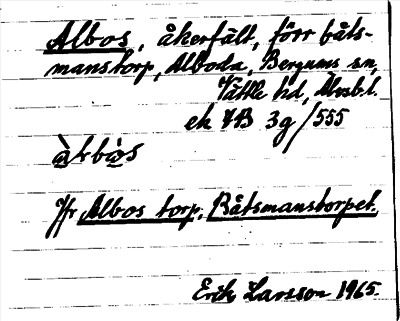 Albos, åkerfält, förr båts-
manstorp, Alboda, Bergums sn,
Vättle hd, Älvsb.l.
ek 7B 3g/555
àrbòs
Jfr Albos torp, Båtsmanstorpet.
Erik Larsson 1965.